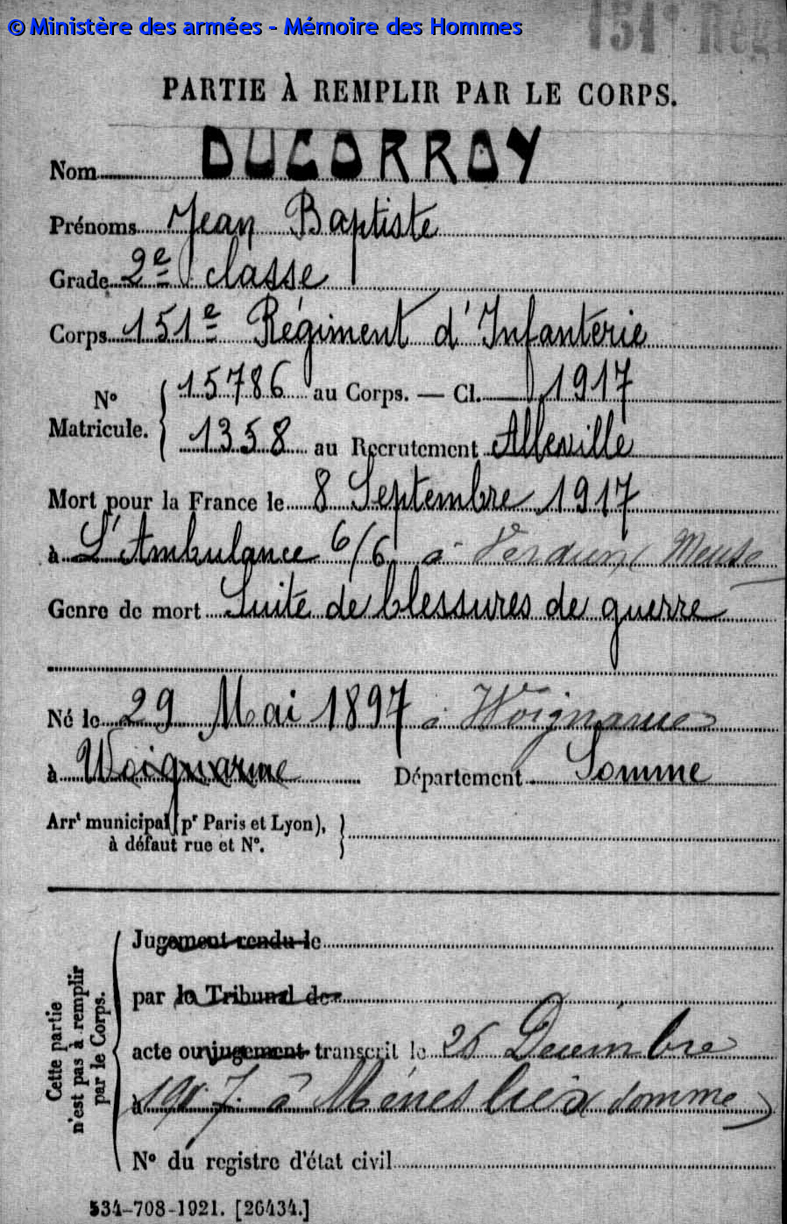 © Ministère des armées - Mémoire des Hommes
151e Régi
PARTIE À REMPLIR PAR LE CORPS.
Nom DUCORROY
Prénoms Jean Baptiste
Grade 2e classe
Corps 151e Régiment d'Infanterie
N° Matricule. { 15786 au Corps. — Cl. 1917
1358 au Recrutement Abbeville
Mort pour la France le 8 Septembre 1917
à L'Ambulance 6/6 à Verdun (Meuse
Genre de mort Suite de blessures de guerre
Né le 29 Mai 1897 à Woignarue
à Woignarue Département Somme
Arrt municipal (pr Paris et Lyon),
à défaut rue et N°. }
Cette partie n'est pas à remplir par le Corps.
Jugement rendu le
par le Tribunal de
acte ou jugement transcrit le 26 Decembre
à 1917 à Méneslies (Somme)
N° du registre d'état civil
534-708-1921. [26434.]